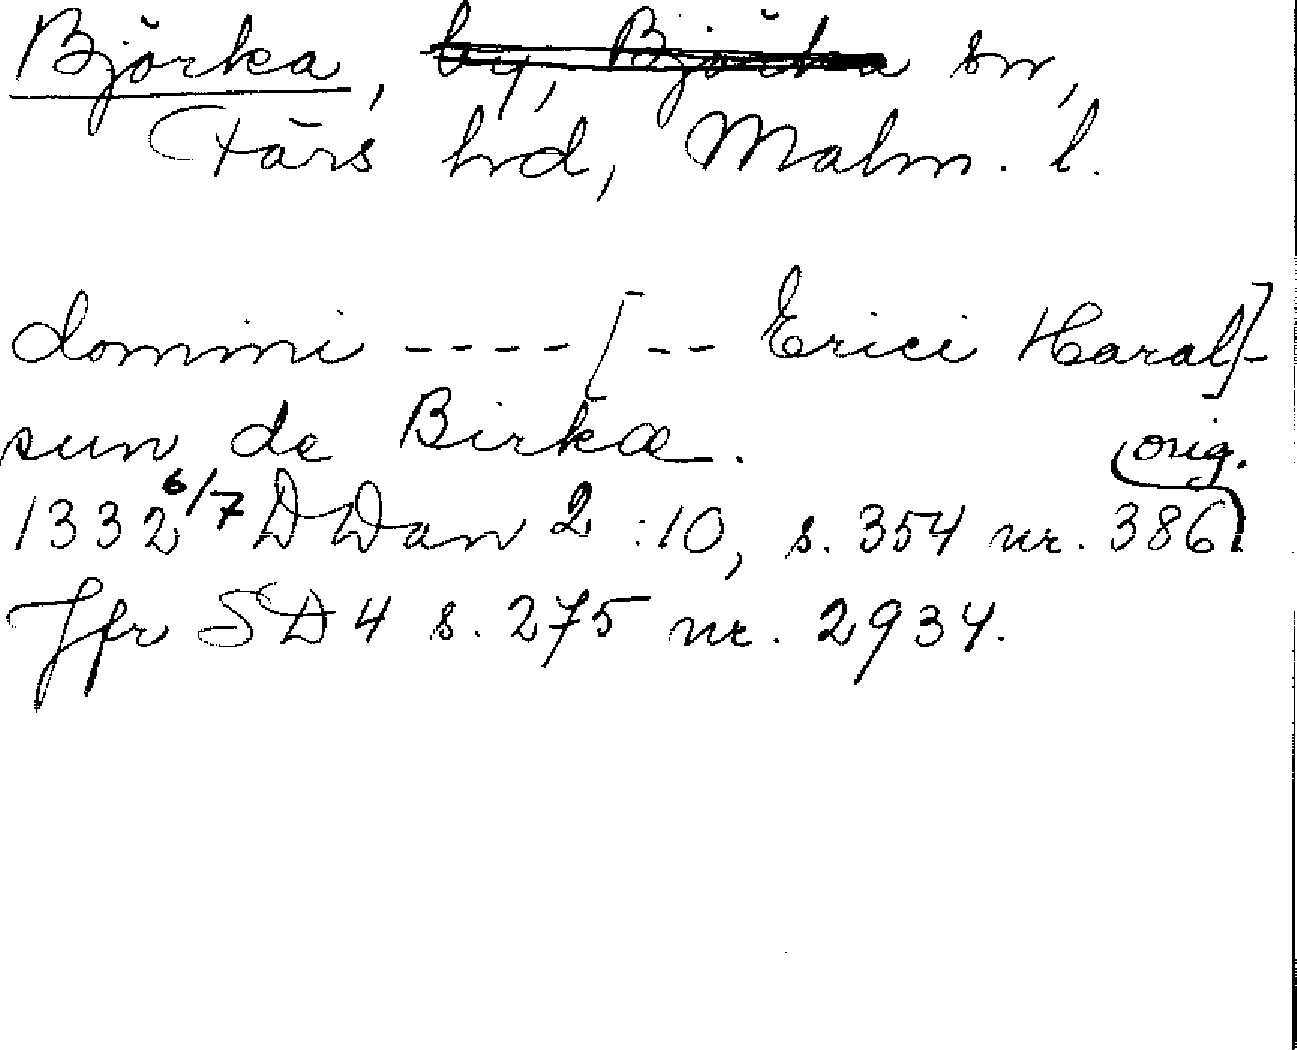 Björka, by, Björka sn,
Färs hrd, Malm. l.
domini ----[-- Erici Haral]-
sun de Birkæ.
orig.
1332 6/7 DDan 2:10, s. 354 nr. 386.
Jfr SD 4 s. 275 nr. 2934.